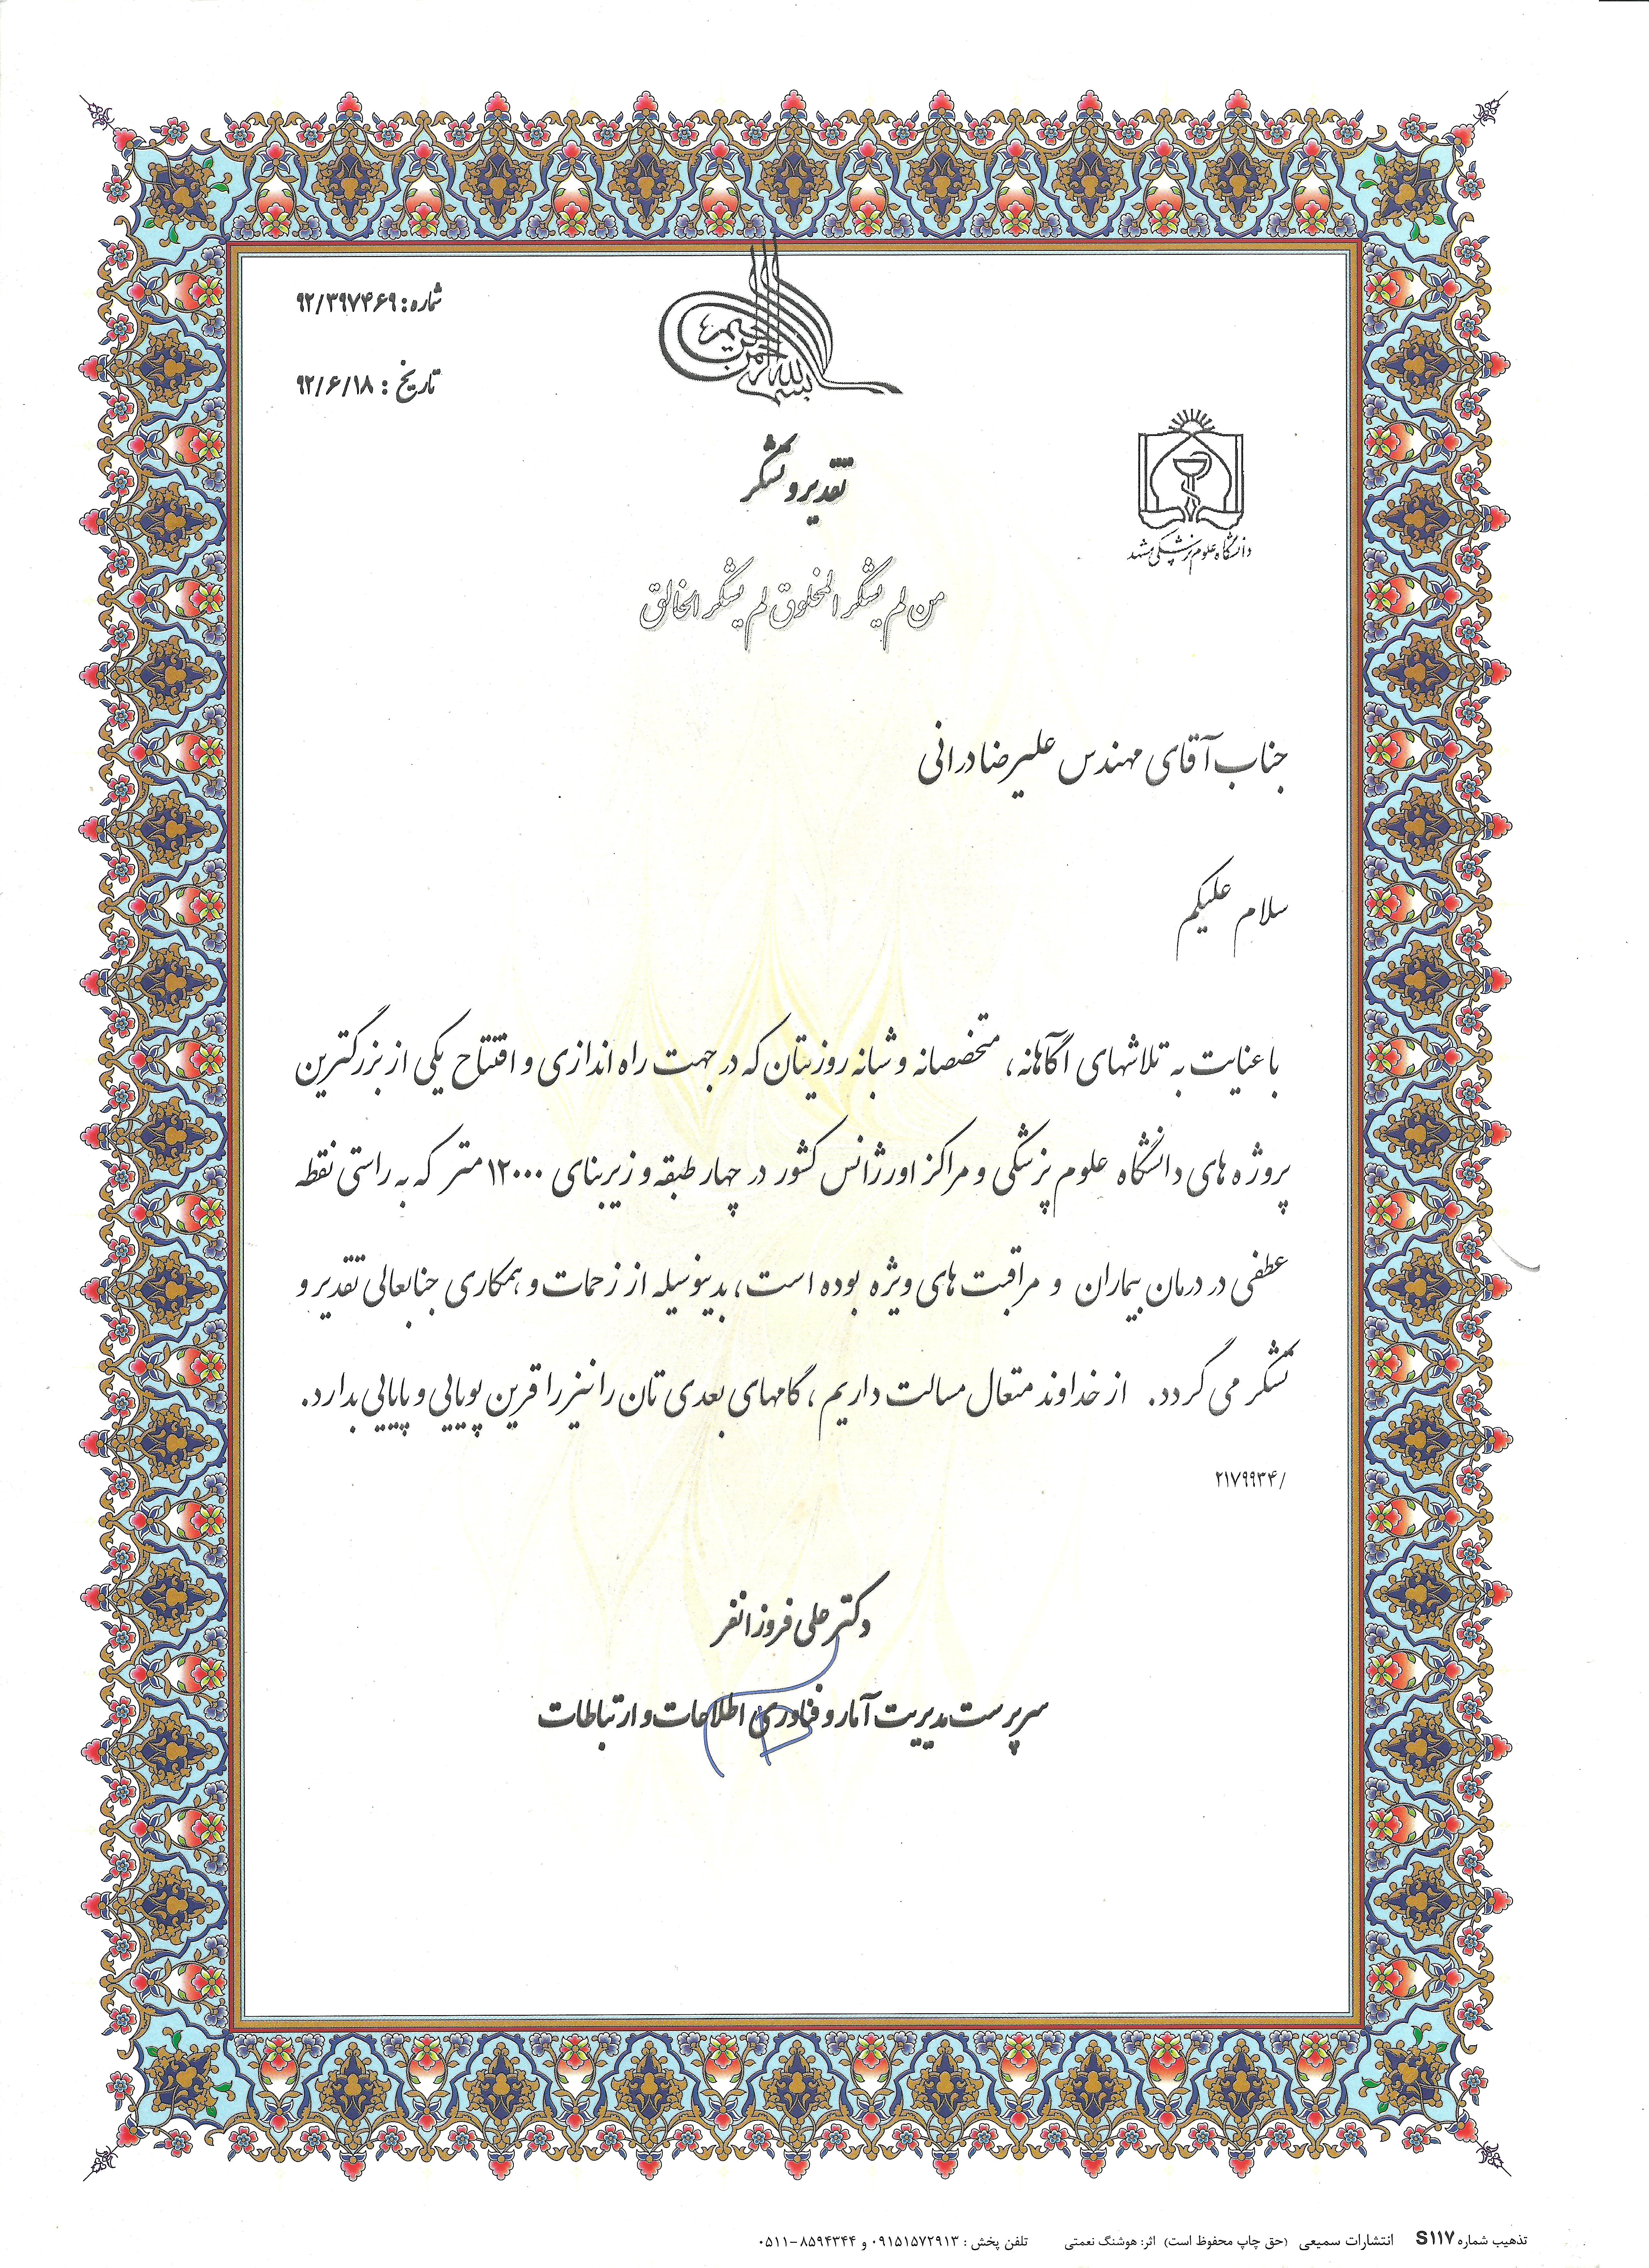 بسم الله الرحمن الرحیم
شماره: ۹۲/۳۹۷۴۶۹
تاریخ : ۹۲/۶/۱۸
دانشگاه علوم پزشکی مشهد
تقدیر و تشکر
من لم یشکر المخلوق لم یشکر الخالق
جناب آقای مهندس علیرضا درانی
سلام علیکم
با عنایت به تلاشهای آگاهانه، متخصصانه و شبانه روزیتان که در جهت راه اندازی و افتتاح یکی از بزرگترین
پروژه های دانشگاه علوم پزشکی و مراکز اورژانس کشور در چهار طبقه و زیربنای ۱۲۰۰۰ متر که به راستی نقطه
عطفی در درمان بیماران و مراقبت های ویژه بوده است، بدینوسیله از زحمات و همکاری جنابعالی تقدیر و
تشکر می گردد. از خداوند متعال مسالت داریم، گامهای بعدی تان را نیز را قرین پویایی و پایایی بدارد.
/۲۱۷۹۹۳۴
دکتر علی فروزانفر
سرپرست مدیریت آمار و فناوری اطلاعات و ارتباطات
تذهیب شماره S۱۱۷ انتشارات سمیعی (حق چاپ محفوظ است) اثر: هوشنگ نعمتی تلفن پخش : ۰۹۱۵۱۵۷۲۹۱۳ و ۸۵۹۴۳۴۴-۰۵۱۱